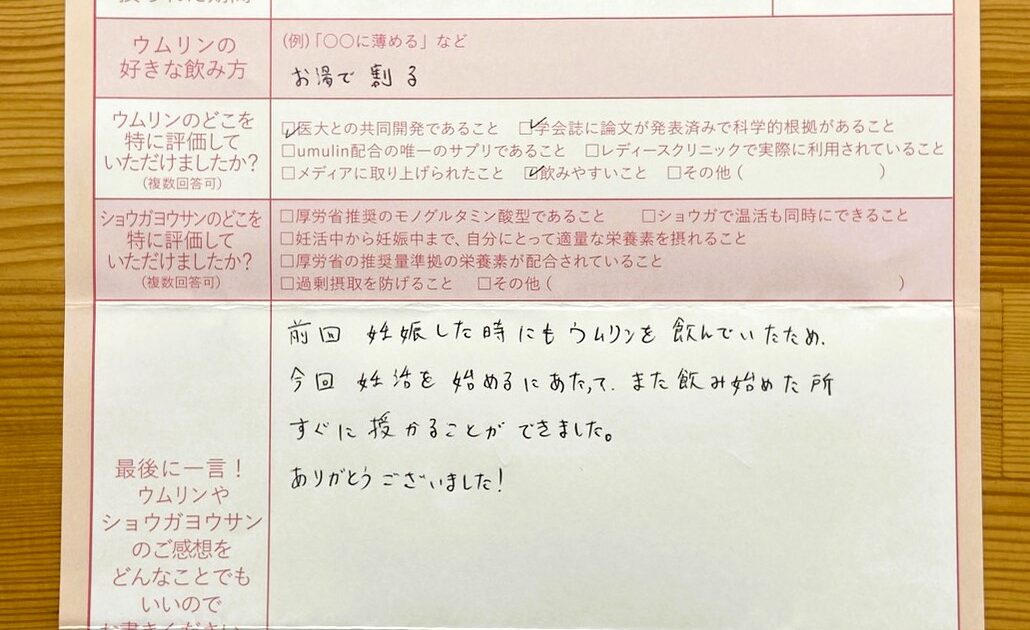 ウムリンの
好きな飲み方
(例)「〇〇に薄める」など
お湯で割る
ウムリンのどこを
特に評価して
いただけましたか?
(複数回答可)
☑医大との共同開発であること ☑学会誌に論文が発表済みで科学的根拠があること
□umulin配合の唯一のサプリであること □レディースクリニックで実際に利用されていること
□メディアに取り上げられたこと ☑飲みやすいこと □その他( )
ショウガヨウサンのどこを
特に評価して
いただけましたか?
(複数回答可)
□厚労省推奨のモノグルタミン酸型であること □ショウガで温活も同時にできること
□妊活中から妊娠中まで、自分にとって適量な栄養素を摂れること
□厚労省の推奨量準拠の栄養素が配合されていること
□過剰摂取を防げること □その他( )
最後に一言!
ウムリンや
ショウガヨウサン
のご感想を
どんなことでも
いいので
前回 妊娠した時にもウムリンを飲んでいたため、
今回 妊活を始めるにあたって、また飲み始めた所
すぐに授かることができました。
ありがとうございました!